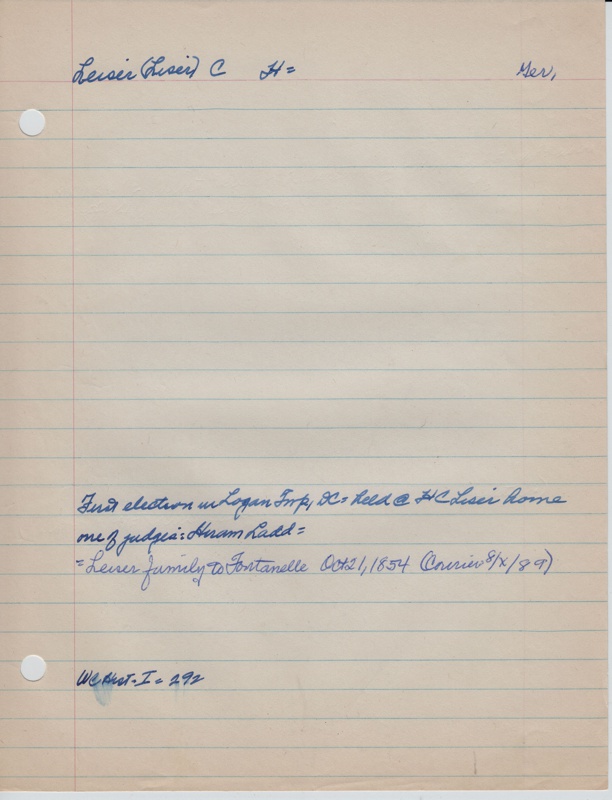 Leiser (Liser) C H= Ger,
First election in Logan Twp, DC = held @ H C Liser home
one of judges: Hiram Ladd =
= Leiser family to Fontanelle Oct 21, 1854 (Courier 8/x/89)
WC Hist - I = 292